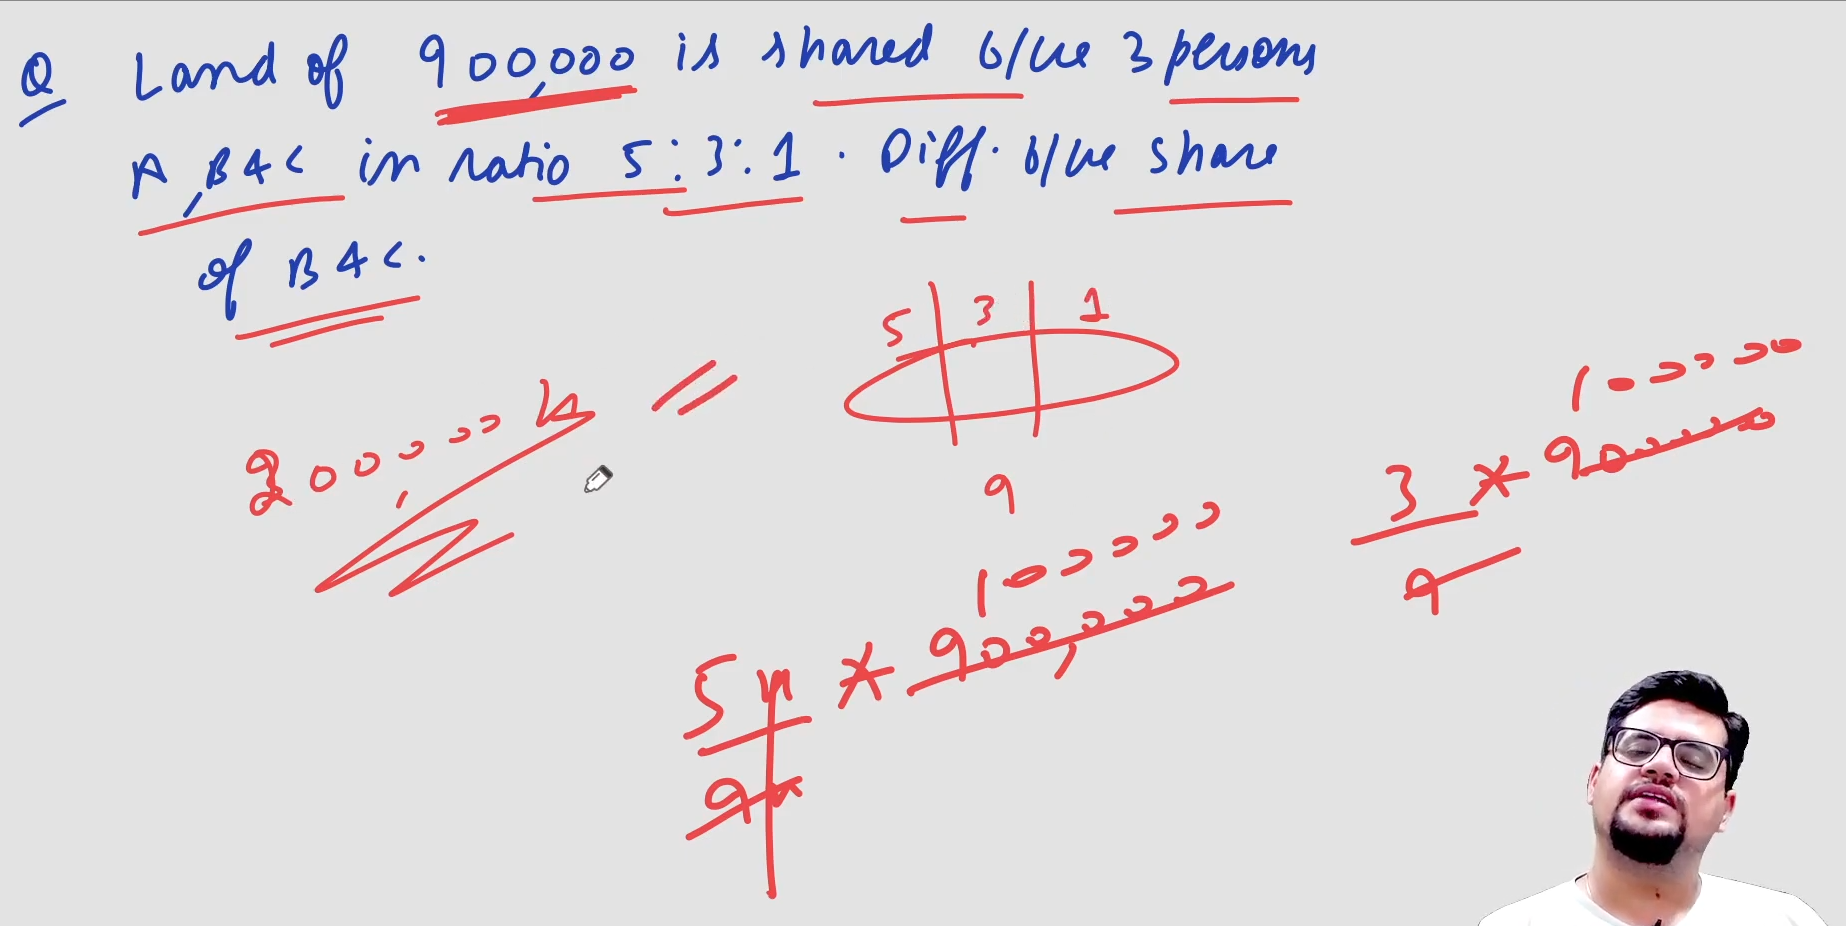 Q Land of 900,000 is shared b/w 3 persons
A, B & C in ratio 5:3:1. Diff. b/w share
of B & C.
5 3 1
9
200,000
3 * 900000
9
100000
5x * 900,000
9x
100000